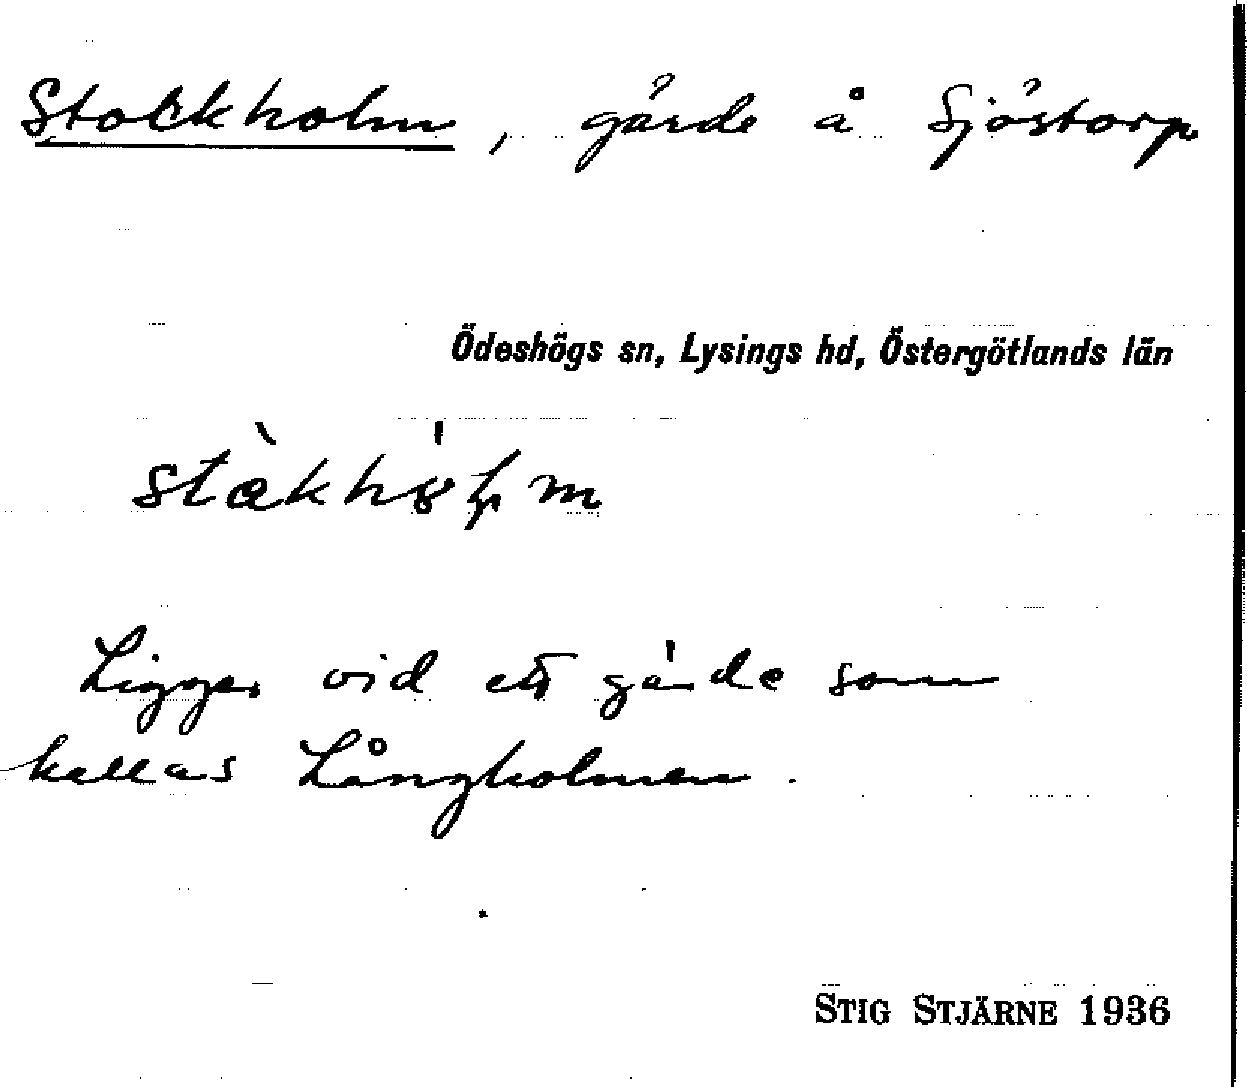 Stockholm, gärde å Sjöstorp
Ödeshögs sn, Lysings hd, Östergötlands län
Ligger vid ett gärde som
kallas Långholmen.
STIG STJÄRNE 1936